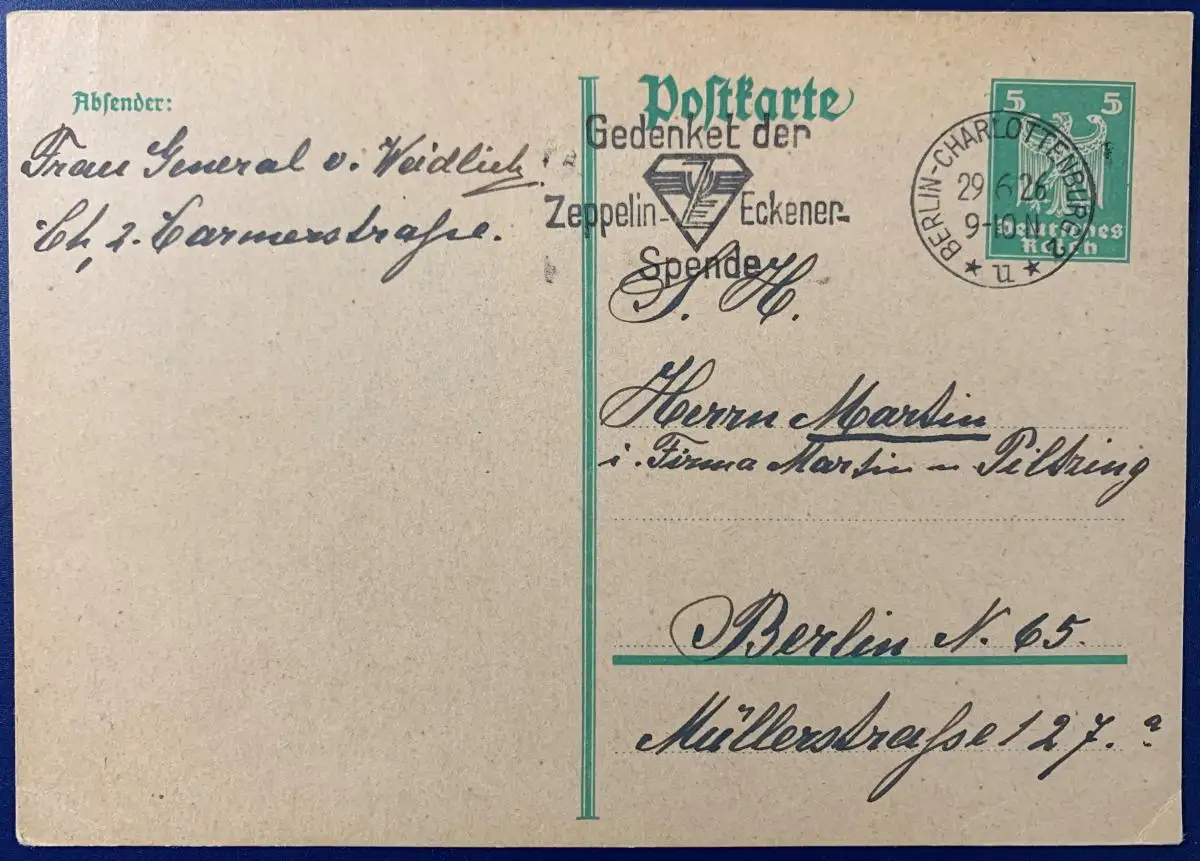 Absender:
Frau General v. Weidlich
Ch, 2. Carmerstraße.
Postkarte
Gedenket der
Zeppelin-Eckener-
Spende
5 5
Deutsches
Reich
BERLIN-CHARLOTTENBURG 2
29.6.26
9-10 N
* u *
S. H.
Herrn Martin
i. Firma Martin u Piltzing
Berlin N. 65.
Müllerstraße 127. a